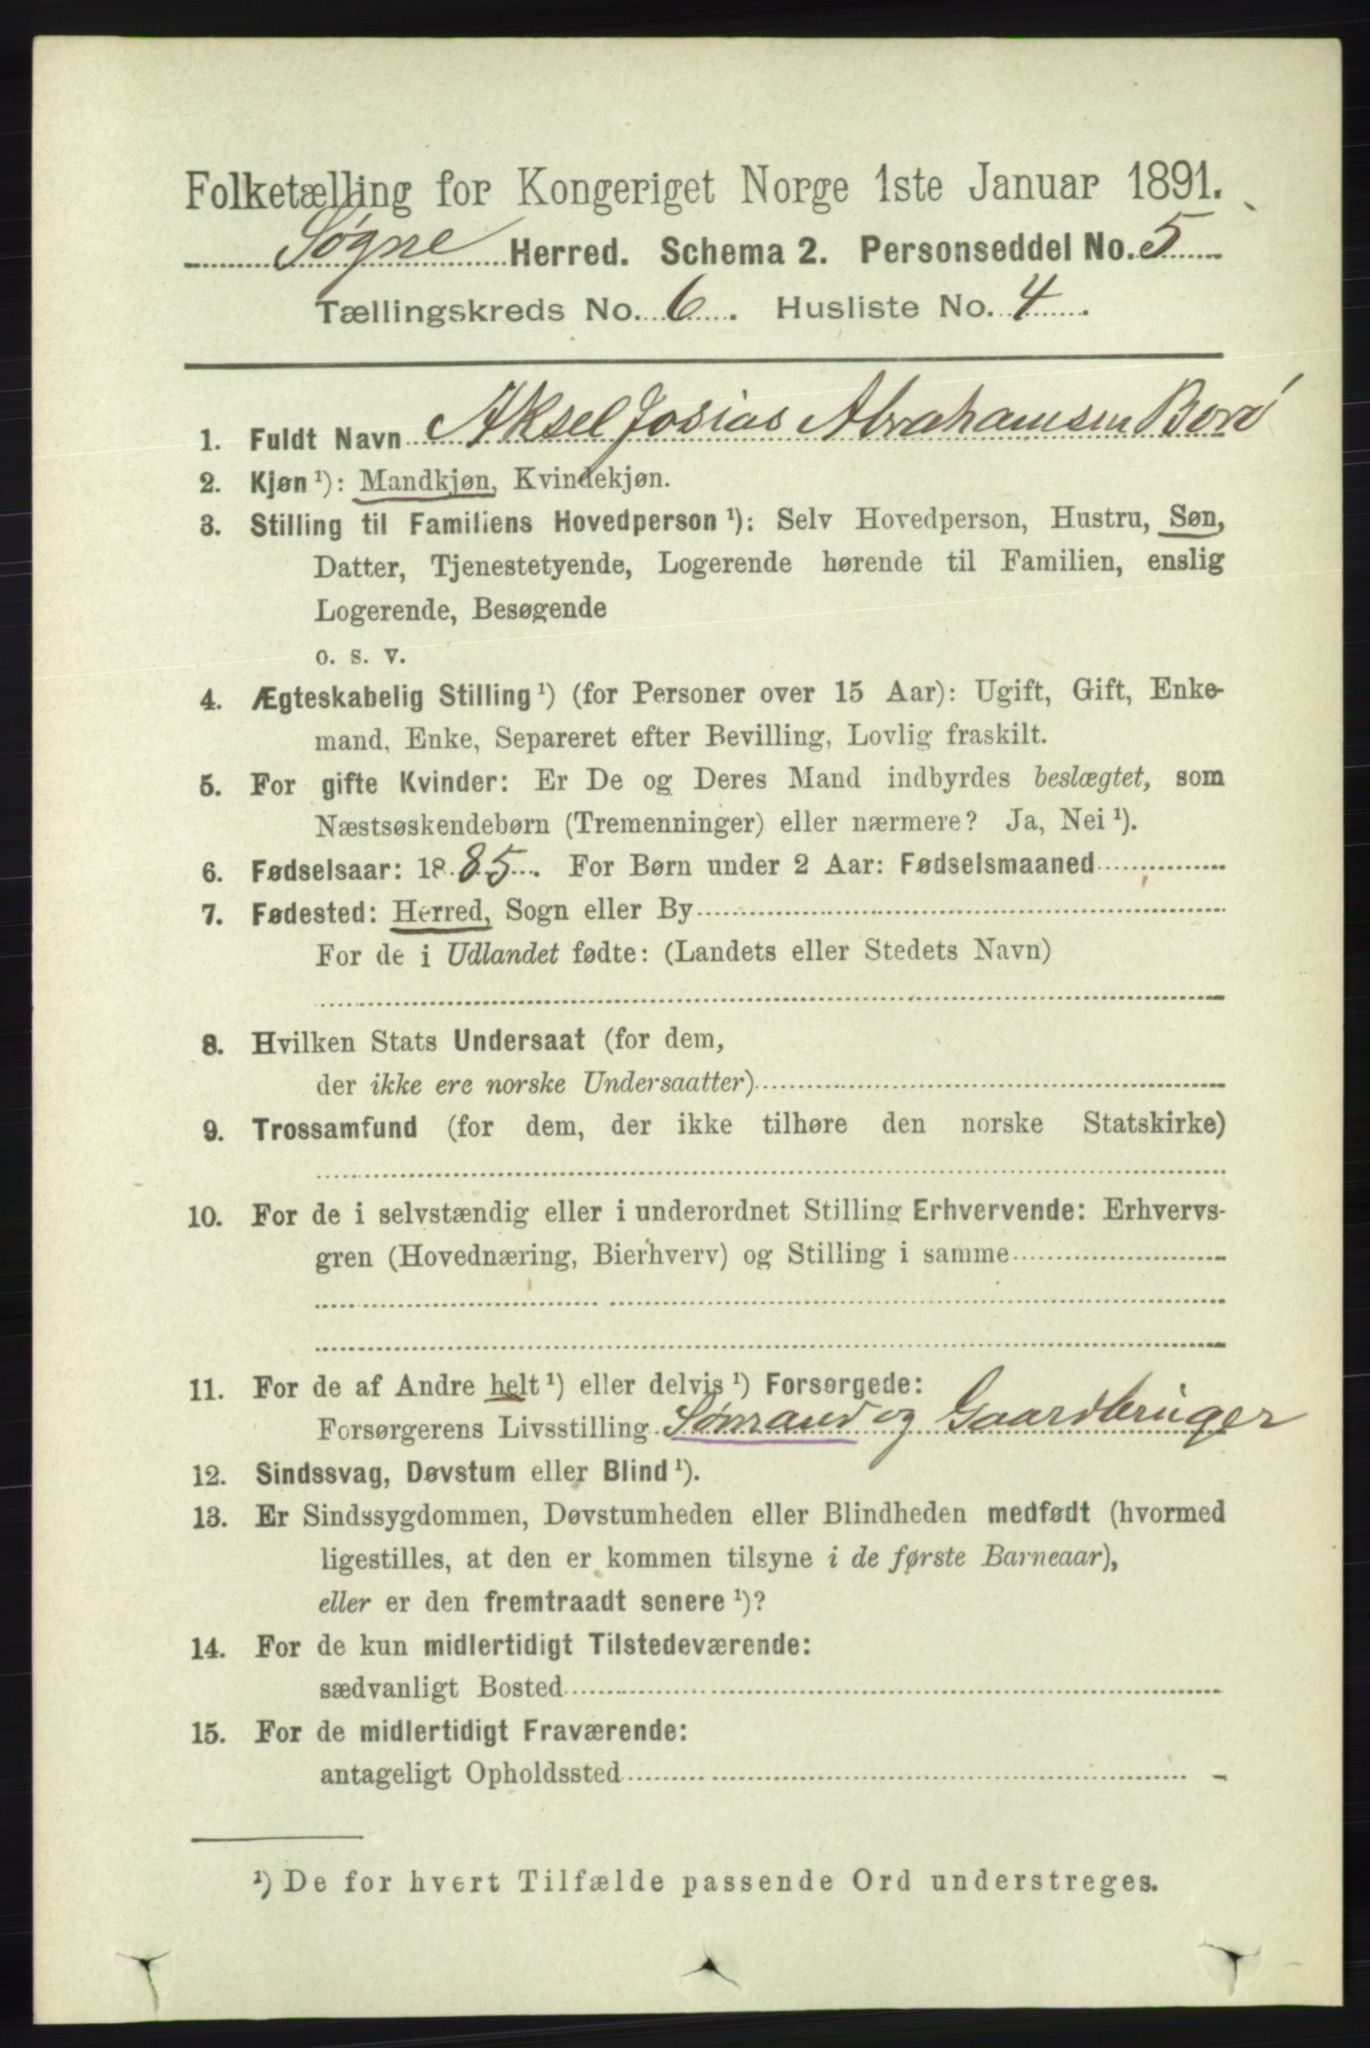 Folketælling for Kongeriget Norge 1ste Januar 1891.
Søgne Herred. Schema 2. Personseddel No. 5
Tællingskreds No. 6. Husliste No. 4.
1. Fuldt Navn Aksel Josias Abrahamsen Borø
2. Kjøn ¹): Mandkjøn, Kvindekjøn.
3. Stilling til Familiens Hovedperson ¹): Selv Hovedperson, Hustru, Søn,
Datter, Tjenestetyende, Logerende hørende til Familien, enslig
Logerende, Besøgende
o. s. v.
4. Ægteskabelig Stilling ¹) (for Personer over 15 Aar): Ugift, Gift, Enke-
mand, Enke, Separeret efter Bevilling, Lovlig fraskilt.
5. For gifte Kvinder: Er De og Deres Mand indbyrdes beslægtet, som
Næstsøskendebørn (Tremenninger) eller nærmere? Ja, Nei ¹).
6. Fødselsaar: 1885. For Børn under 2 Aar: Fødselsmaaned
7. Fødested: Herred, Sogn eller By
For de i Udlandet fødte: (Landets eller Stedets Navn)
8. Hvilken Stats Undersaat (for dem,
der ikke ere norske Undersaatter)
9. Trossamfund (for dem, der ikke tilhøre den norske Statskirke)
10. For de i selvstændig eller i underordnet Stilling Erhvervende: Erhvervs-
gren (Hovednæring, Bierhverv) og Stilling i samme
11. For de af Andre helt ¹) eller delvis ¹) Forsørgede:
Forsørgerens Livsstilling Sømand og Gaardbruger
12. Sindssvag, Døvstum eller Blind ¹).
13. Er Sindssygdommen, Døvstumheden eller Blindheden medfødt (hvormed
ligestilles, at den er kommen tilsyne i de første Barneaar),
eller er den fremtraadt senere ¹)?
14. For de kun midlertidigt Tilstedeværende:
sædvanligt Bosted
15. For de midlertidigt Fraværende:
antageligt Opholdssted
¹) De for hvert Tilfælde passende Ord understreges.